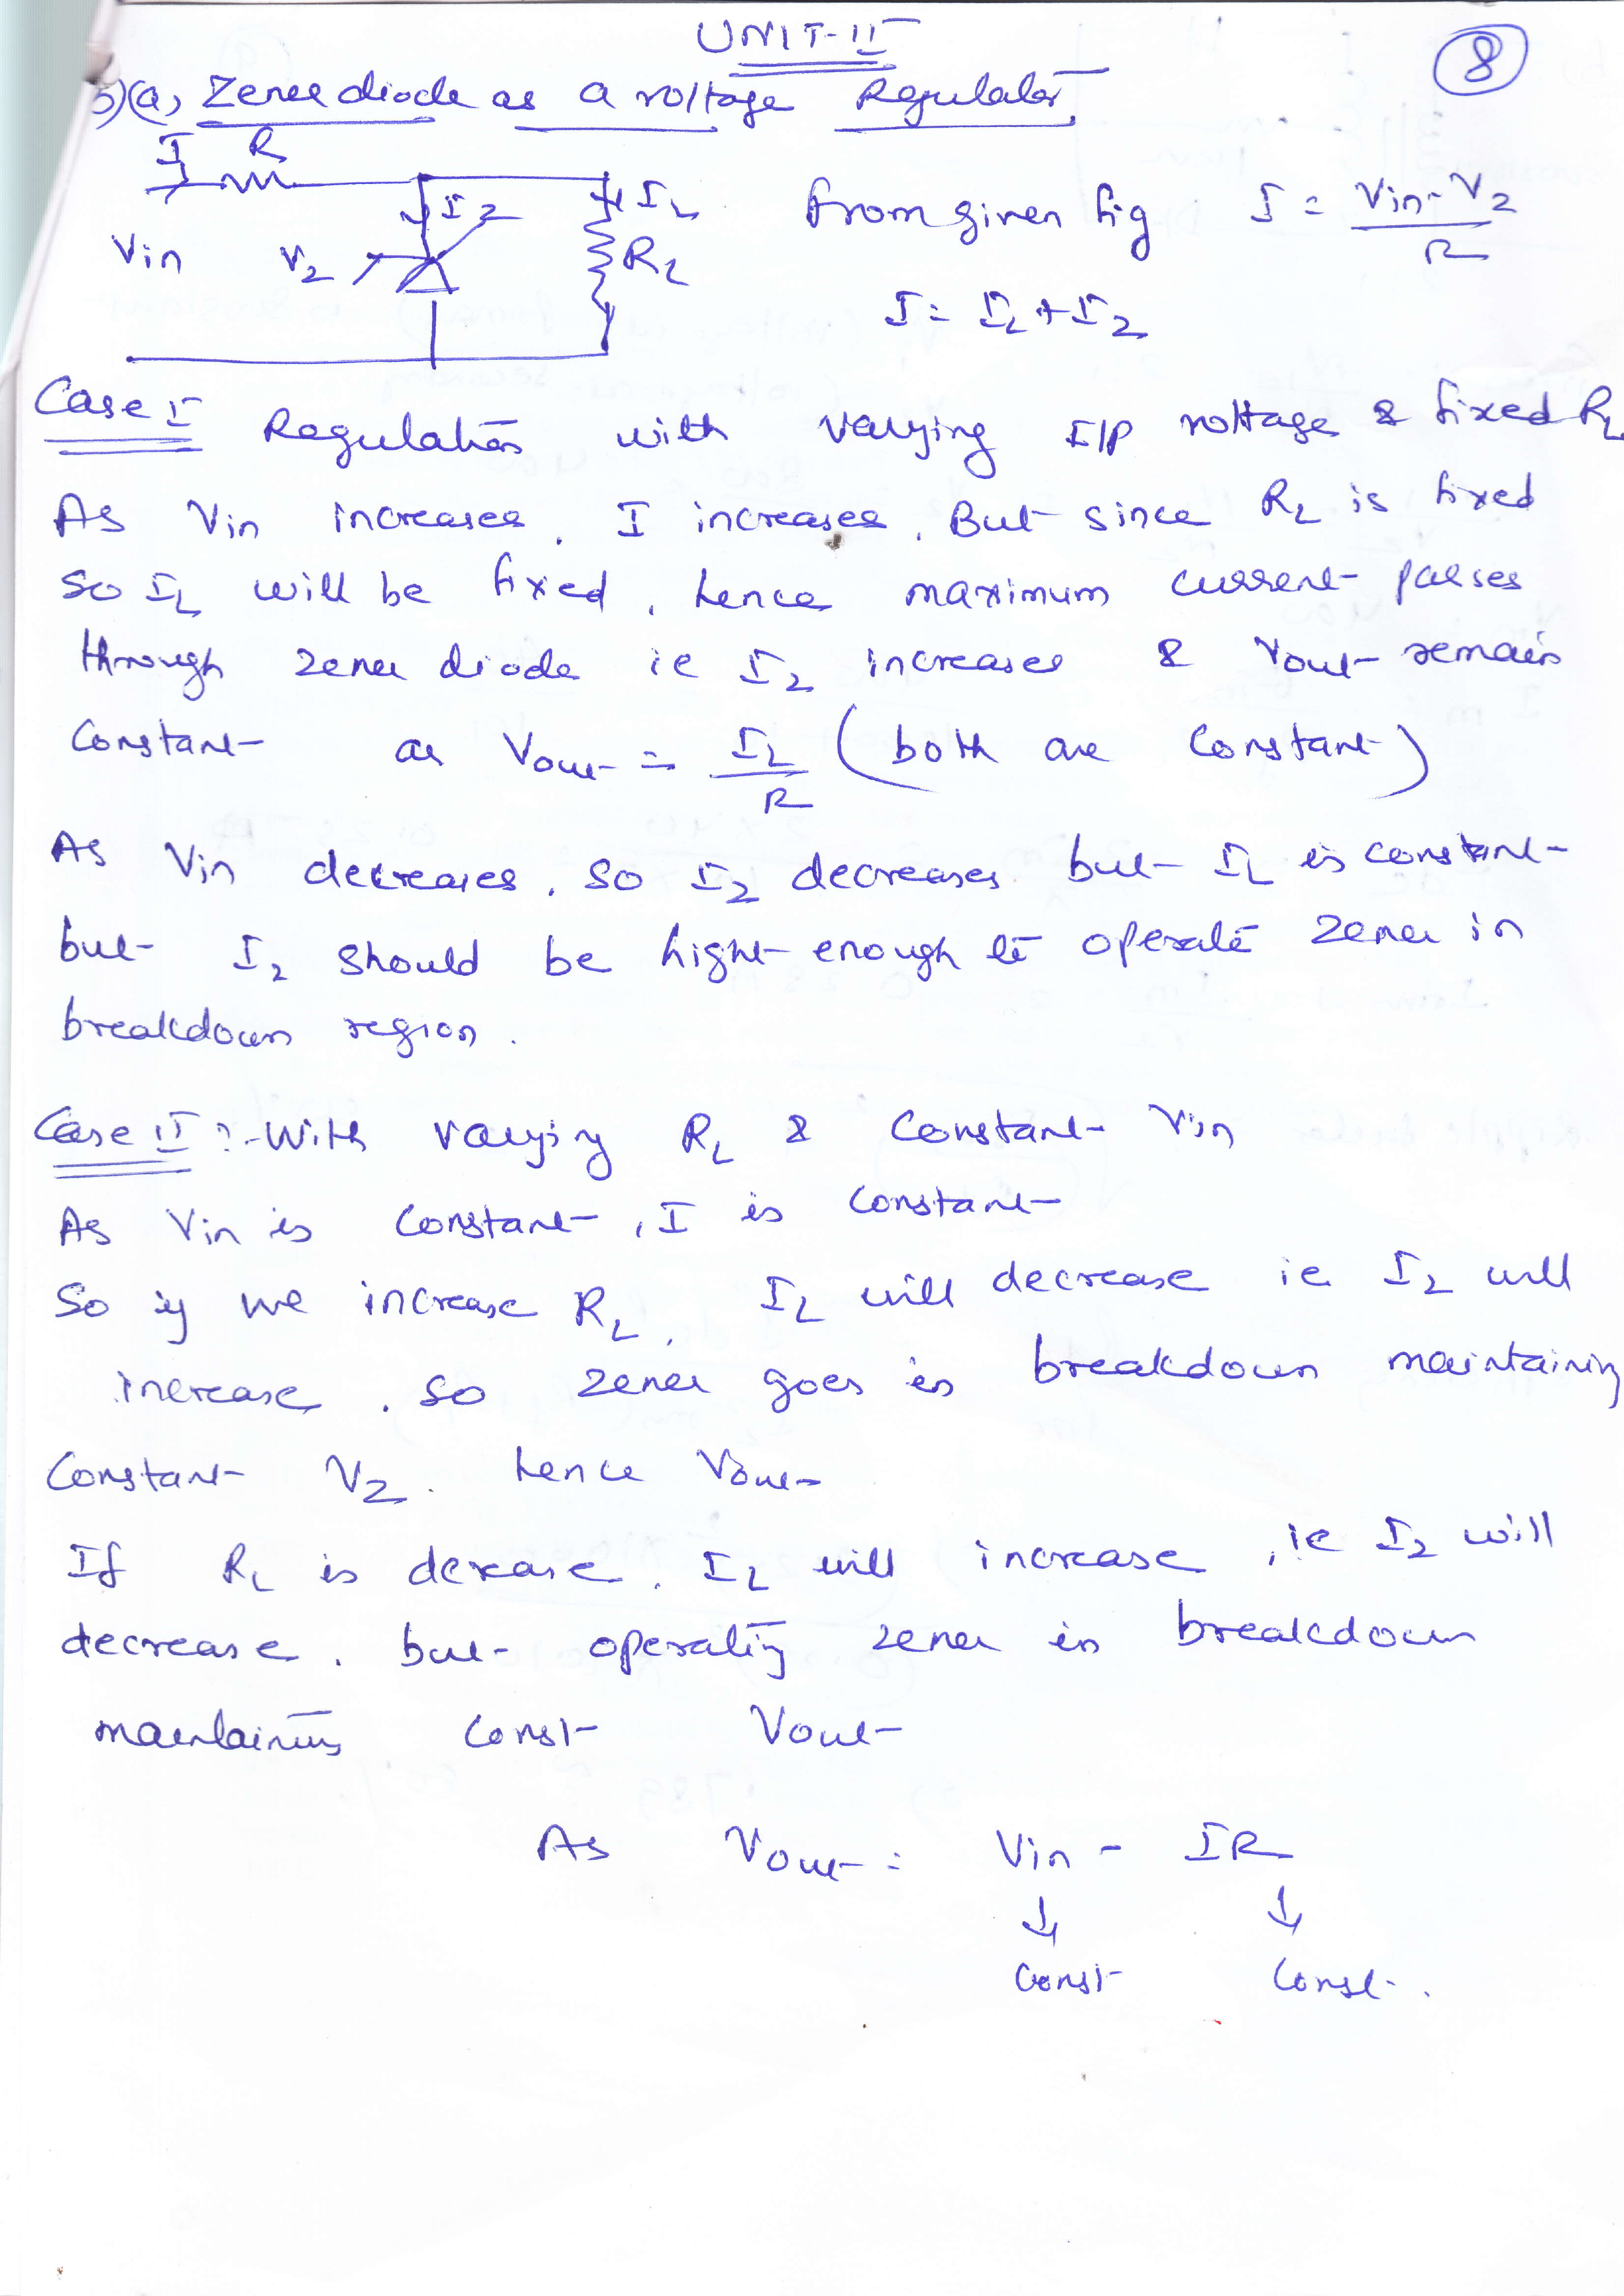 UNIT-II
8
5)(a) Zener diode as a voltage Regulator
I R
IZ IL
Vin VZ RL
from given fig I = Vin - VZ / R
I = IL + IZ
Case I Regulation with varying I/P voltage & fixed RL
As Vin increases, I increases, But since RL is fixed
so IL will be fixed, hence maximum current passes
through zener diode ie IZ increases & Vout remain
constant as Vout = IL / R (both are constant)
As Vin decreases, so IZ decreases but IL is constant
but IZ should be hight enough to operate zener in
breakdown region.
Case II :- With varying RL & constant Vin
As Vin is constant, I is constant
So if we increase RL, IL will decrease ie IZ will
increase, so zener goes in breakdown maintaining
constant VZ. hence Vout
If RL is decrease, IL will increase, ie IZ will
decrease, but operating zener in breakdown
maintaining const Vout
As Vout = Vin - IR
↓ ↓
const const.